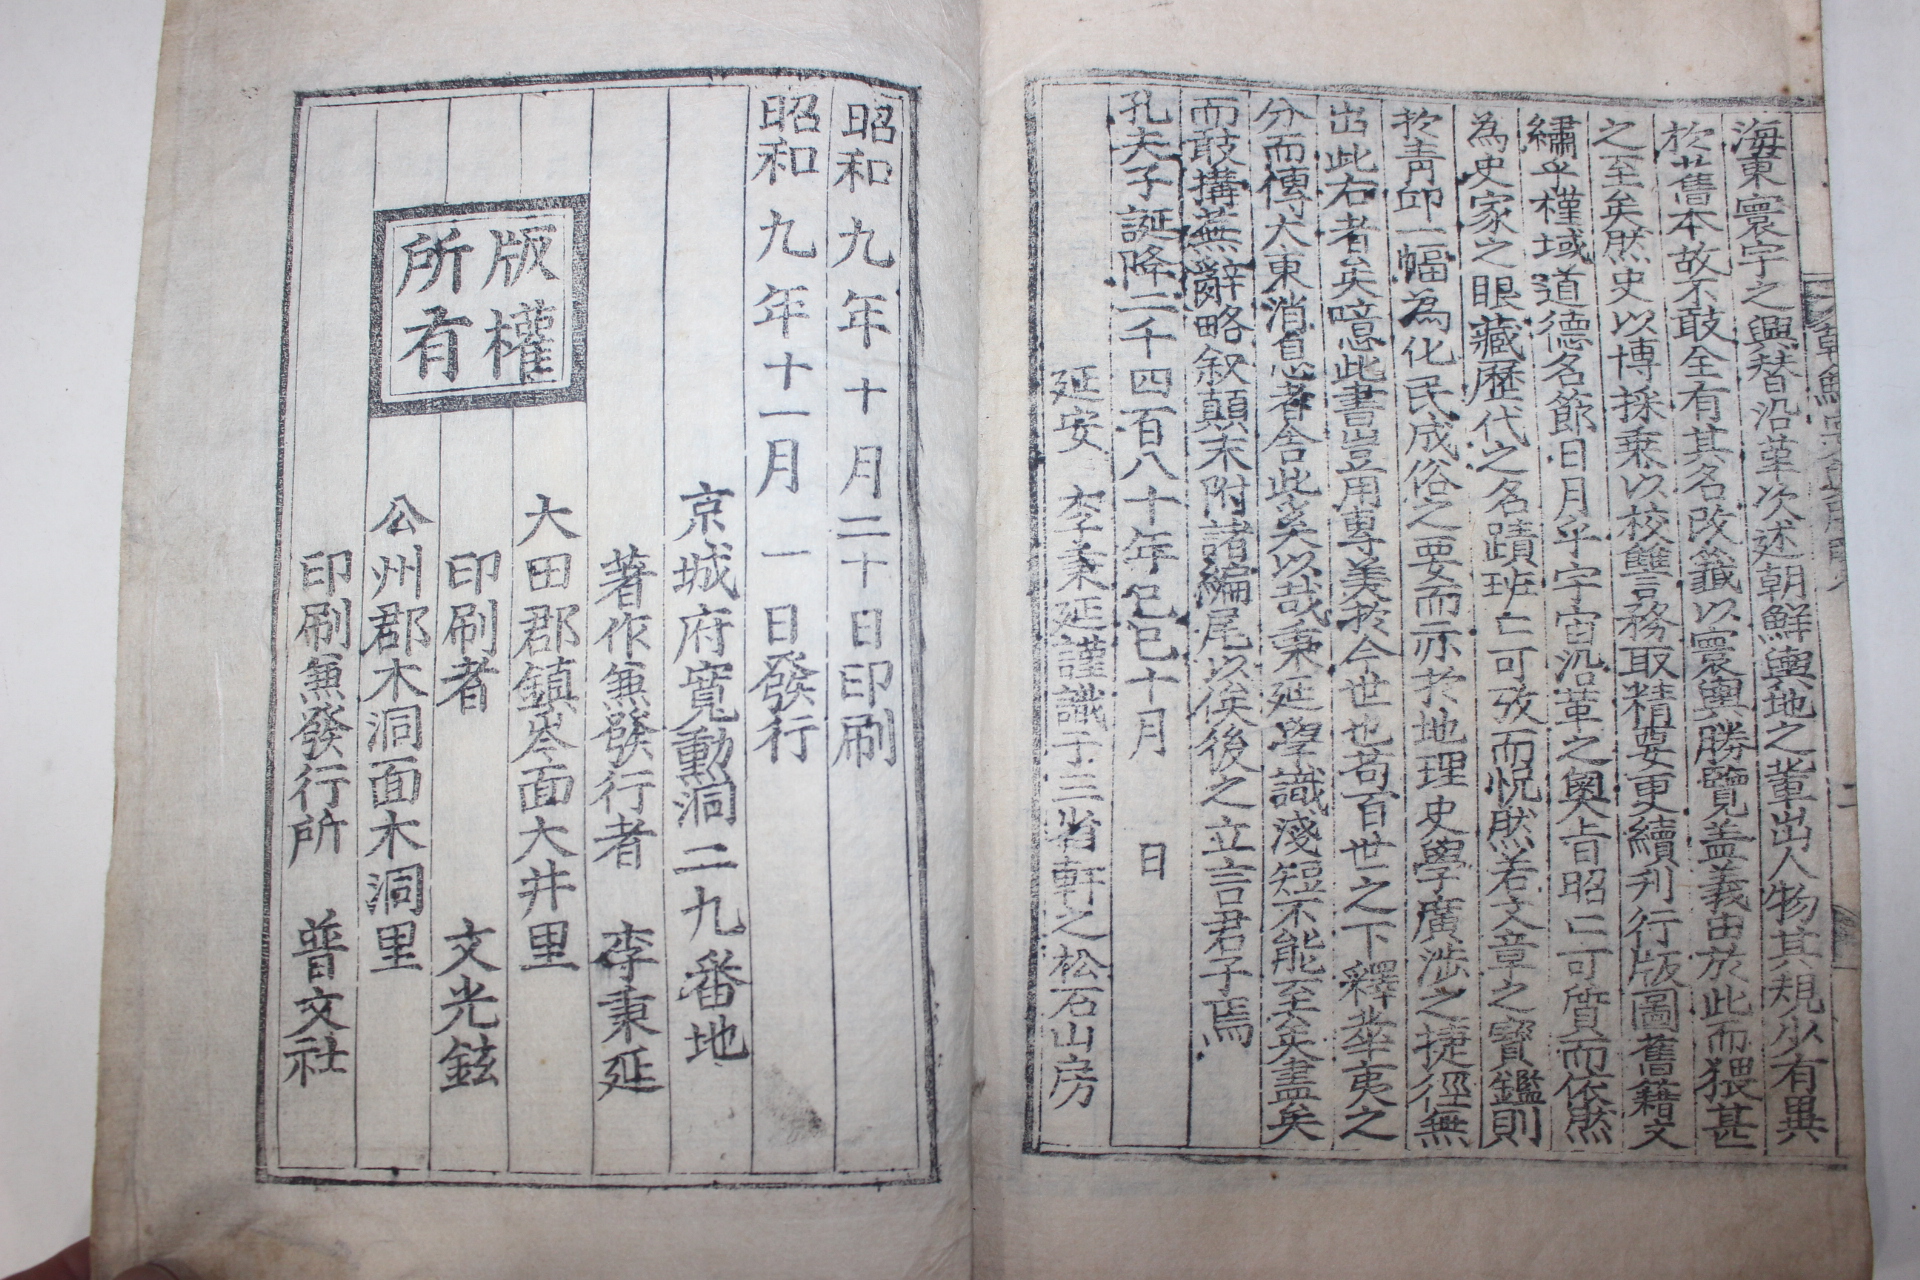 海東寰宇之興替沿革次述朝鮮輿地之輩出人物其規少有異
於舊本故不敢全有其名改籤以寰輿勝覽盖義由於此而猥甚
之至矣然史以博採乘以校讐言務取精要更續刋行版圖舊籍文
繡乎槿域道德名節日月乎宇宙沿革之奧旨昭亡可質而依然
為史家之眼藏歷代之名蹟班亡可攷而怳然若文章之寶鑑則
於靑卬一幅為化民成俗之要而亦於地理史學廣涉之捷徑無
出此右者矣噫此書豈用專美於今世也苟百世之下釋華夷之
分而傳大東消息者舍此奚以哉秉延學識淺短不能至矣盡矣
而敢搆蕪辭略叙顛末附諸編尾以俟後之立言君子焉
孔夫子誕降二千四百八十年己巳十月 日
延安 李秉延謹識于三省軒之松石山房
昭和九年十月二十日印刷
昭和九年十一月一日發行
京城府寬勳洞二九番地
著作兼發行者 李秉延
大田郡鎮岑面大井里
印刷者 文光鉉
公州郡木洞面木洞里
印刷兼發行所 普文社
版權
所有